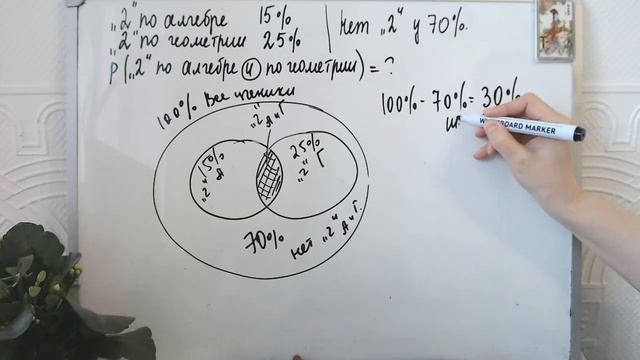 „2" по алгебре 15%
„2" по геометрии 25%
нет „2" у 70%.
P(„2" по алгебре и по геометрии) = ?
100% Все ученики
„2" А и Г
15%
„2" А
25%
„2" Г
70%
нет „2" А и Г.
100% - 70% = 30%
WHITEBOARD MARKER